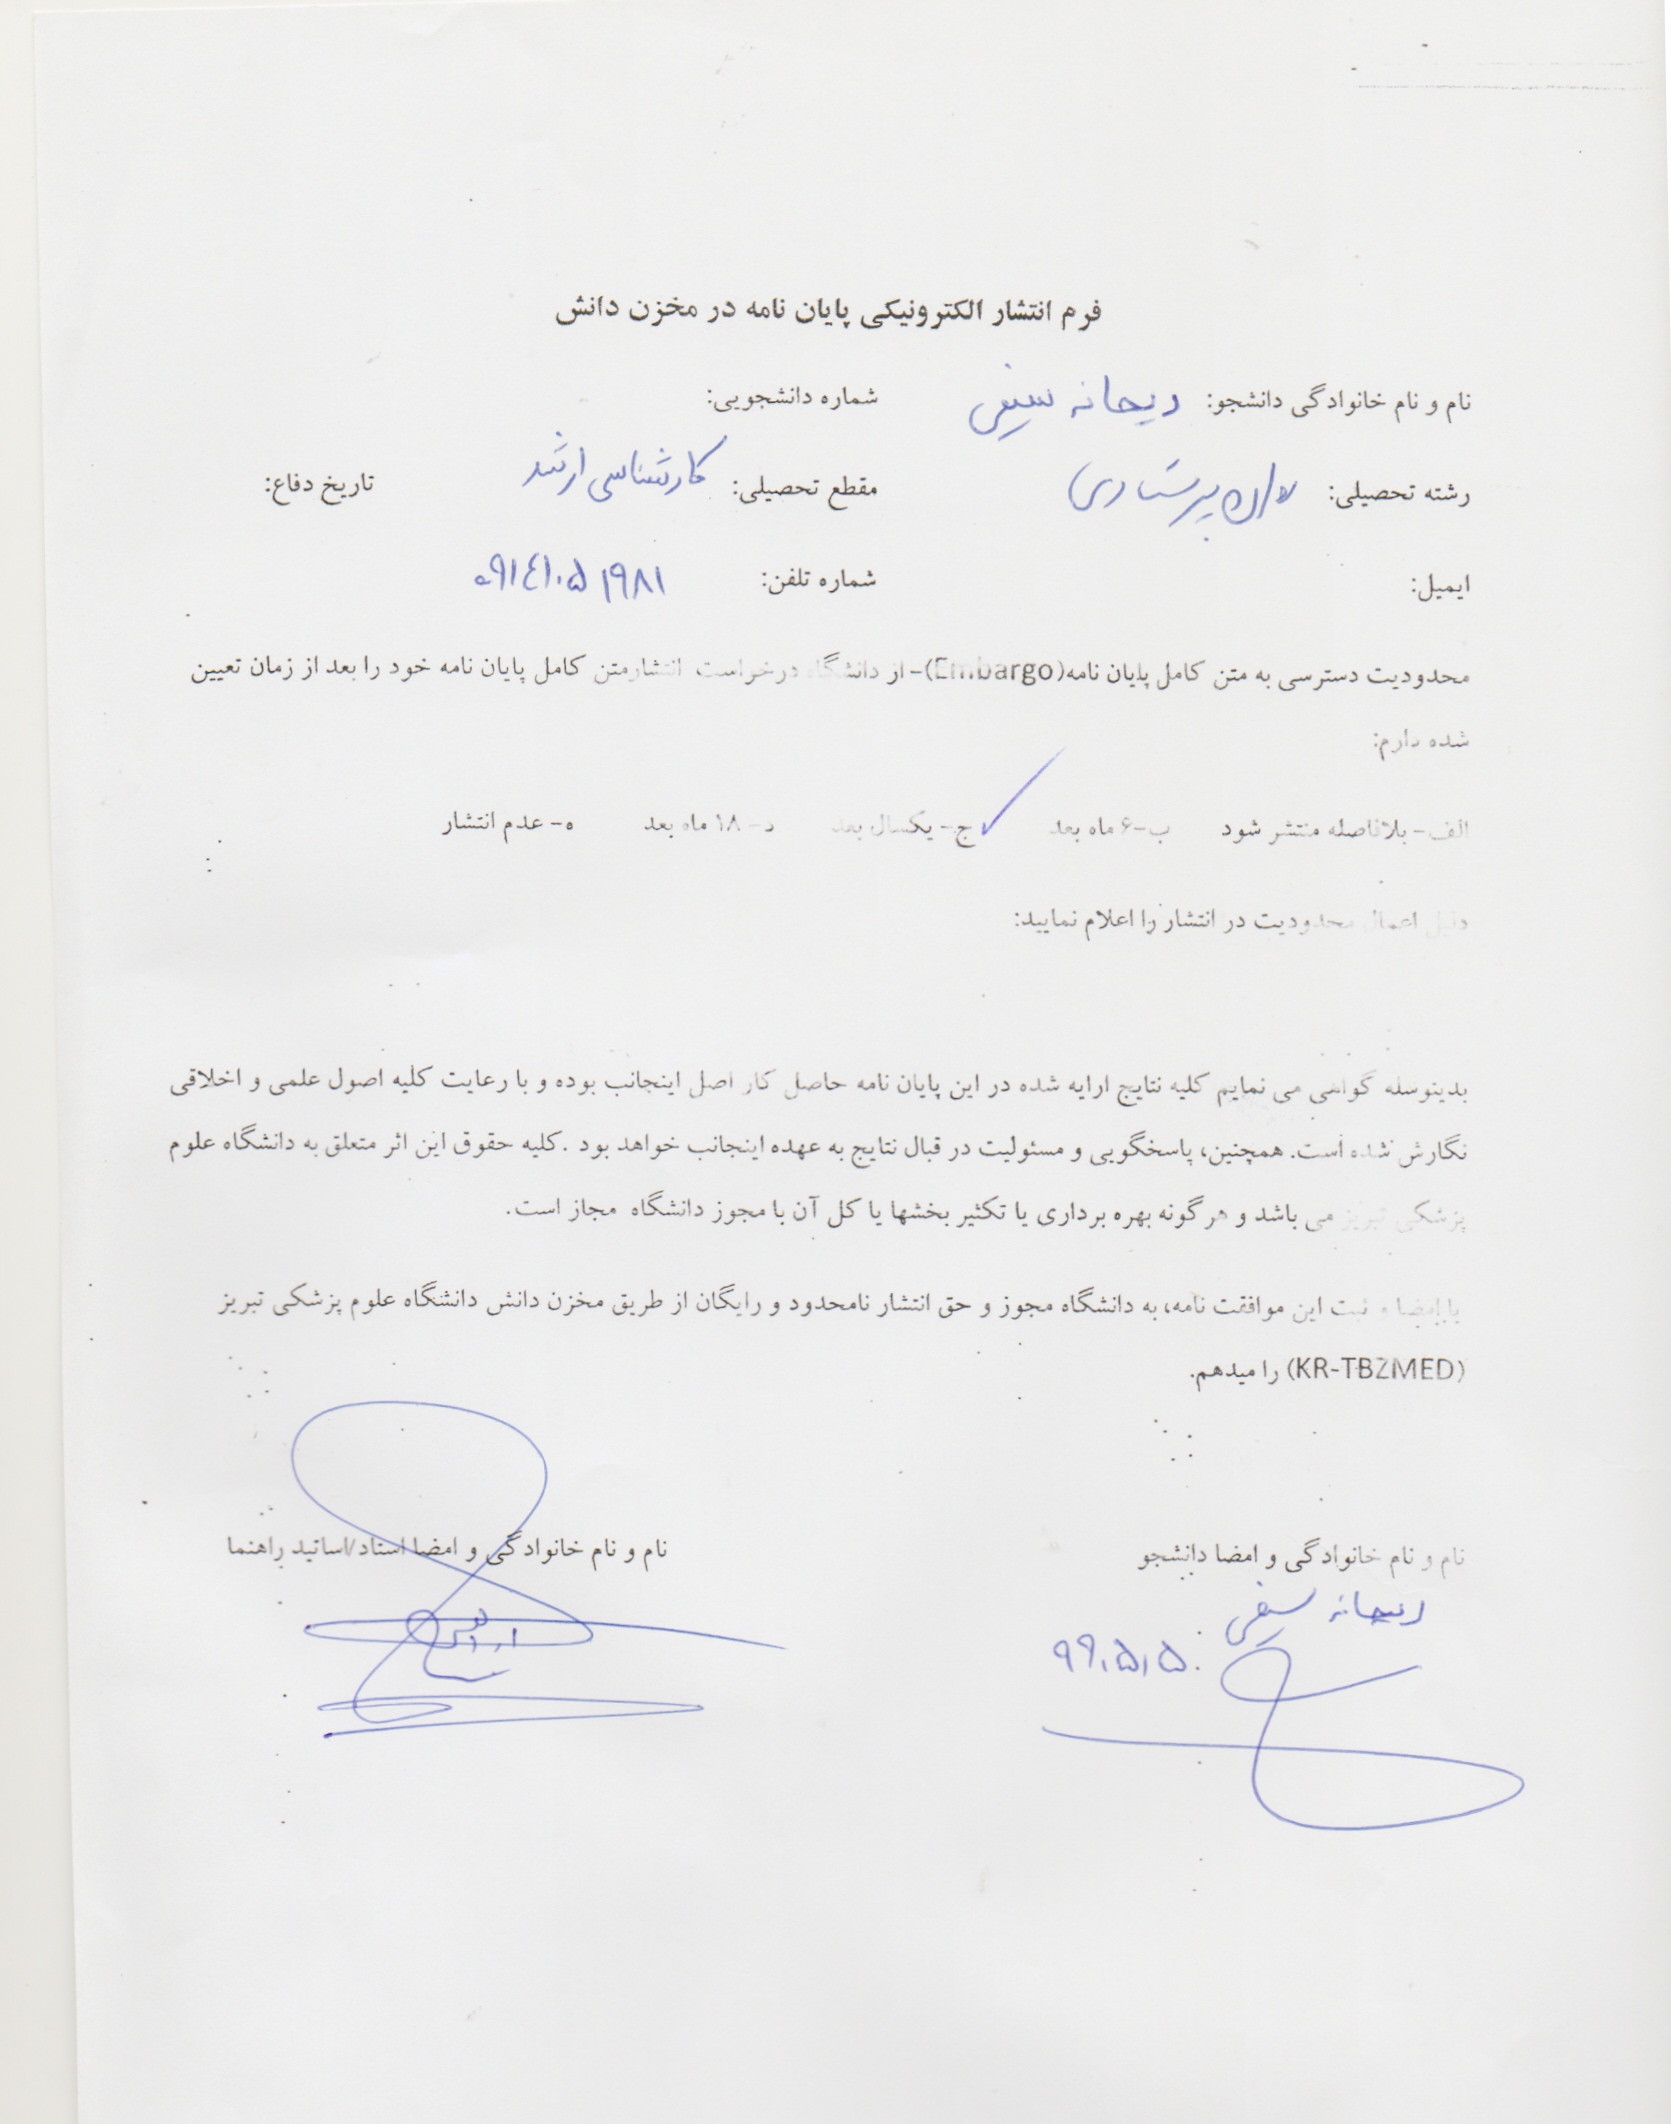 فرم انتشار الکترونیکی پایان نامه در مخزن دانش
نام و نام خانوادگی دانشجو: ریحانه سیفی شماره دانشجویی:
رشته تحصیلی: پرستاری مقطع تحصیلی: کارشناسی ارشد تاریخ دفاع:
ایمیل: شماره تلفن: ۰۹۱۴۱۰۵۱۹۸۱
محدودیت دسترسی به متن کامل پایان نامه(Embargo)- از دانشگاه درخواست انتشارمتن کامل پایان نامه خود را بعد از زمان تعیین
شده دارم:
الف- بلافاصله منتشر شود ب-۶ ماه بعد ✓ج- یکسال بعد د- ۱۸ ماه بعد ه- عدم انتشار
دلیل اعمال محدودیت در انتشار را اعلام نمایید:
بدینوسله گواهی می نمایم کلیه نتایج ارایه شده در این پایان نامه حاصل کار اصل اینجانب بوده و با رعایت کلیه اصول علمی و اخلاقی
نگارش شده است. همچنین، پاسخگویی و مسئولیت در قبال نتایج به عهده اینجانب خواهد بود .کلیه حقوق این اثر متعلق به دانشگاه علوم
پزشکی تبریز می باشد و هرگونه بهره برداری یا تکثیر بخشها یا کل آن با مجوز دانشگاه مجاز است.
با امضا و ثبت این موافقت نامه، به دانشگاه مجوز و حق انتشار نامحدود و رایگان از طریق مخزن دانش دانشگاه علوم پزشکی تبریز
(KR-TBZMED) را میدهم.
نام و نام خانوادگی و امضا دانشجو نام و نام خانوادگی و امضا استاد/اساتید راهنما
ریحانه سیفی
۹۹،۵،۵